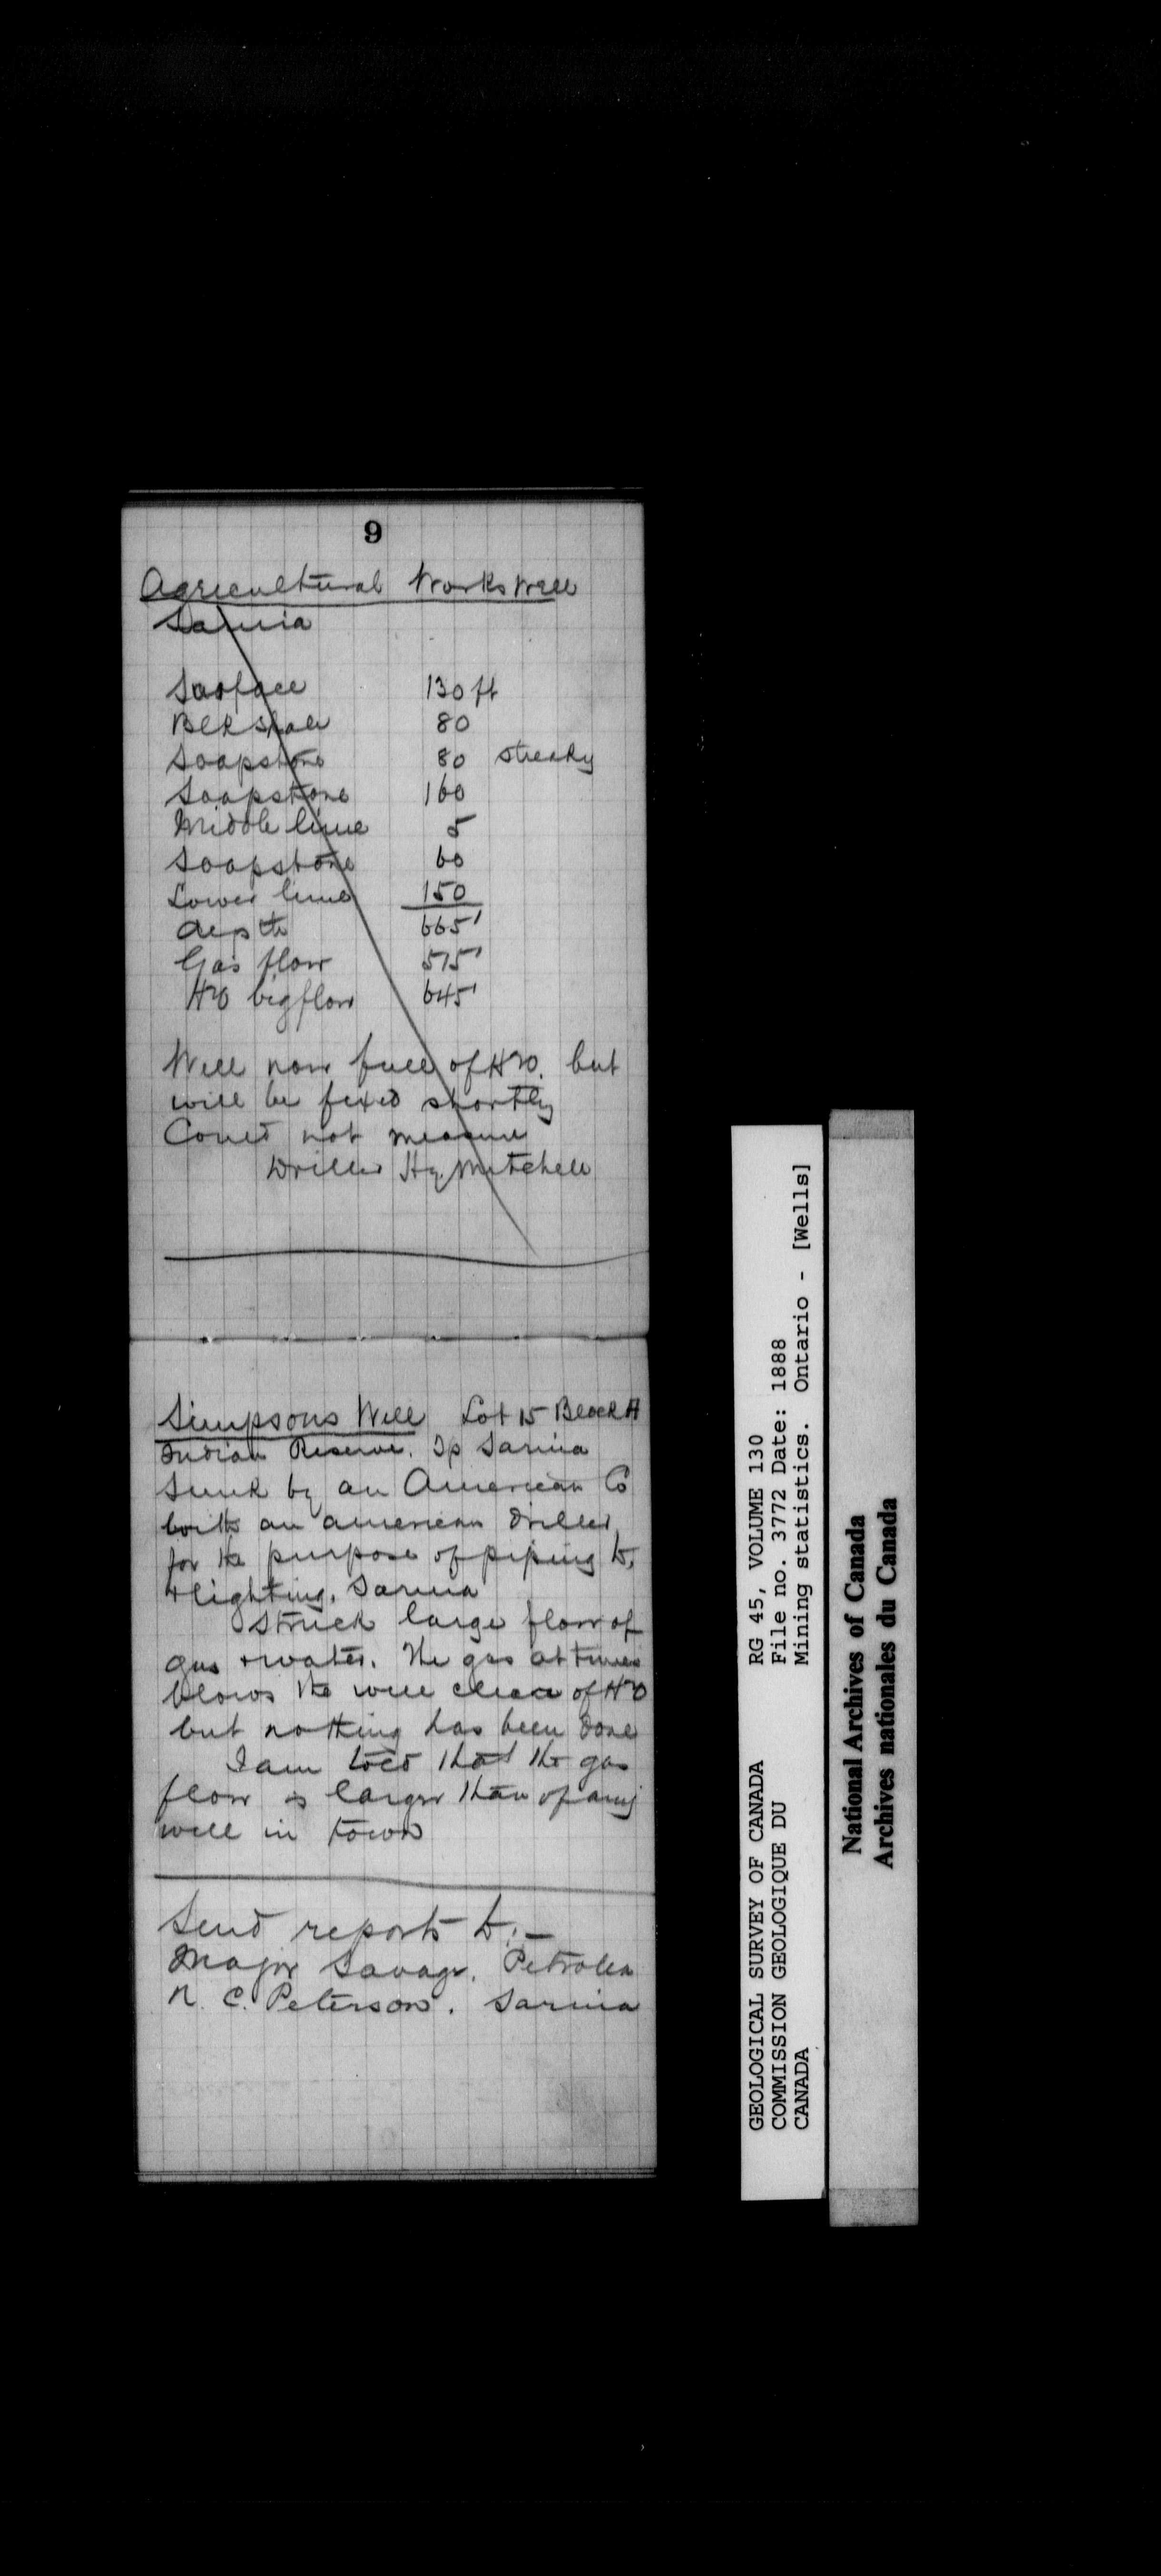 9
Agricultural Works Well
Sarnia
Surface 130 ft
Blk Shale 80
Soapstone 80 streaky
Soapstone 160
Middle lime 5
Soapstone 60
Lower lime 150
depth 665'
Gas flow 515'
H2O big flow 645'
Well now full of H2O. but
will be fixed shortly
Could not measure
Driller Hy Mitchell
Simpsons Well Lot 15 Block A
Indian Reserve. Tp Sarnia
Sunk by an American Co
with an american driller
for the purpose of piping to
+ lighting. Sarnia
Struck large flow of
gas + water. The gas at times
blows the well clear of H2O
but nothing has been done
I am told that the gas
flow is larger than of any
well in town
Send reports to:—
Major Savage. Petrolea
N. C. Peterson. Sarnia
GEOLOGICAL SURVEY OF CANADA RG 45, VOLUME 130
COMMISSION GEOLOGIQUE DU File no. 3772 Date: 1888
CANADA Mining statistics. Ontario - [Wells]
National Archives of Canada
Archives nationales du Canada